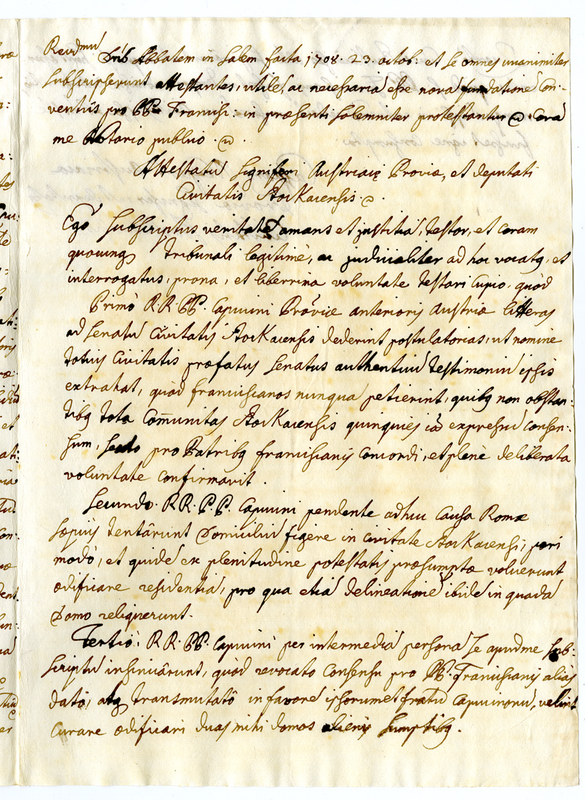 Reverdmũ Dnũ Abbatem in Salem facta 1708. 23. octob: et se omnes unanimiter
subscripserunt attestantes, utile, ac necessaria esse nova fundatione Con-
ventûs pro PP Francisc: in præsenti solemniter protestantur Corã
me Notario publico.
Attestatũ Signiferi Austriacæ Proviæ, et deputati
Civitatis Stokacensis.
Ego subscriptus veritatẽ amans et justitiã, testor, et coram
quocunq tribunali legitime, ac judicialiter ad hoc vocatq, et
interrogatus, prona, et liberrima voluntate testari cupio, quòd
Primò RR. PP. Capucini Prov̄iæ anterioris Austriæ litteras
ad Senatũ Civitatis Stokacensis dederint postulatorias, ut nomine
totius Civitatis præfatus Senatus authenticũ testimoniũ ipsis
extrahat, quòd franciscanos nunquã petierint, quibq non obstan-
tibq tota Com̄unitas Stokacensis quinquies iã expressũ consen-
sum, pro Patribq franciscanis concordi, et plenè deliberata
voluntate confirmavit.
Secundo. RR. P.P. Capucini pendente adhuc Causa Romæ
sæpius tentârunt Domiciliũ figere in Civitate Stokacensi, pari
modo, et quidẽ ex plenitudine potestatis præsumptæ voluerunt
ædificare residentiã, pro qua etiã delineationẽ ibidẽ in quadã
Domo reliquerunt.
Tertiò. RR. PP. Capucini per intermediã personã se apud me Sub-
scriptũ insinuârunt, quòd revocato Consensu pro PP. Franciscanis alias
dato, atq transmutatô in favorẽ ipsorumet fratrũ Capucinorũ, velint
curare ædificari duas mihi domos alienis sumptibq.